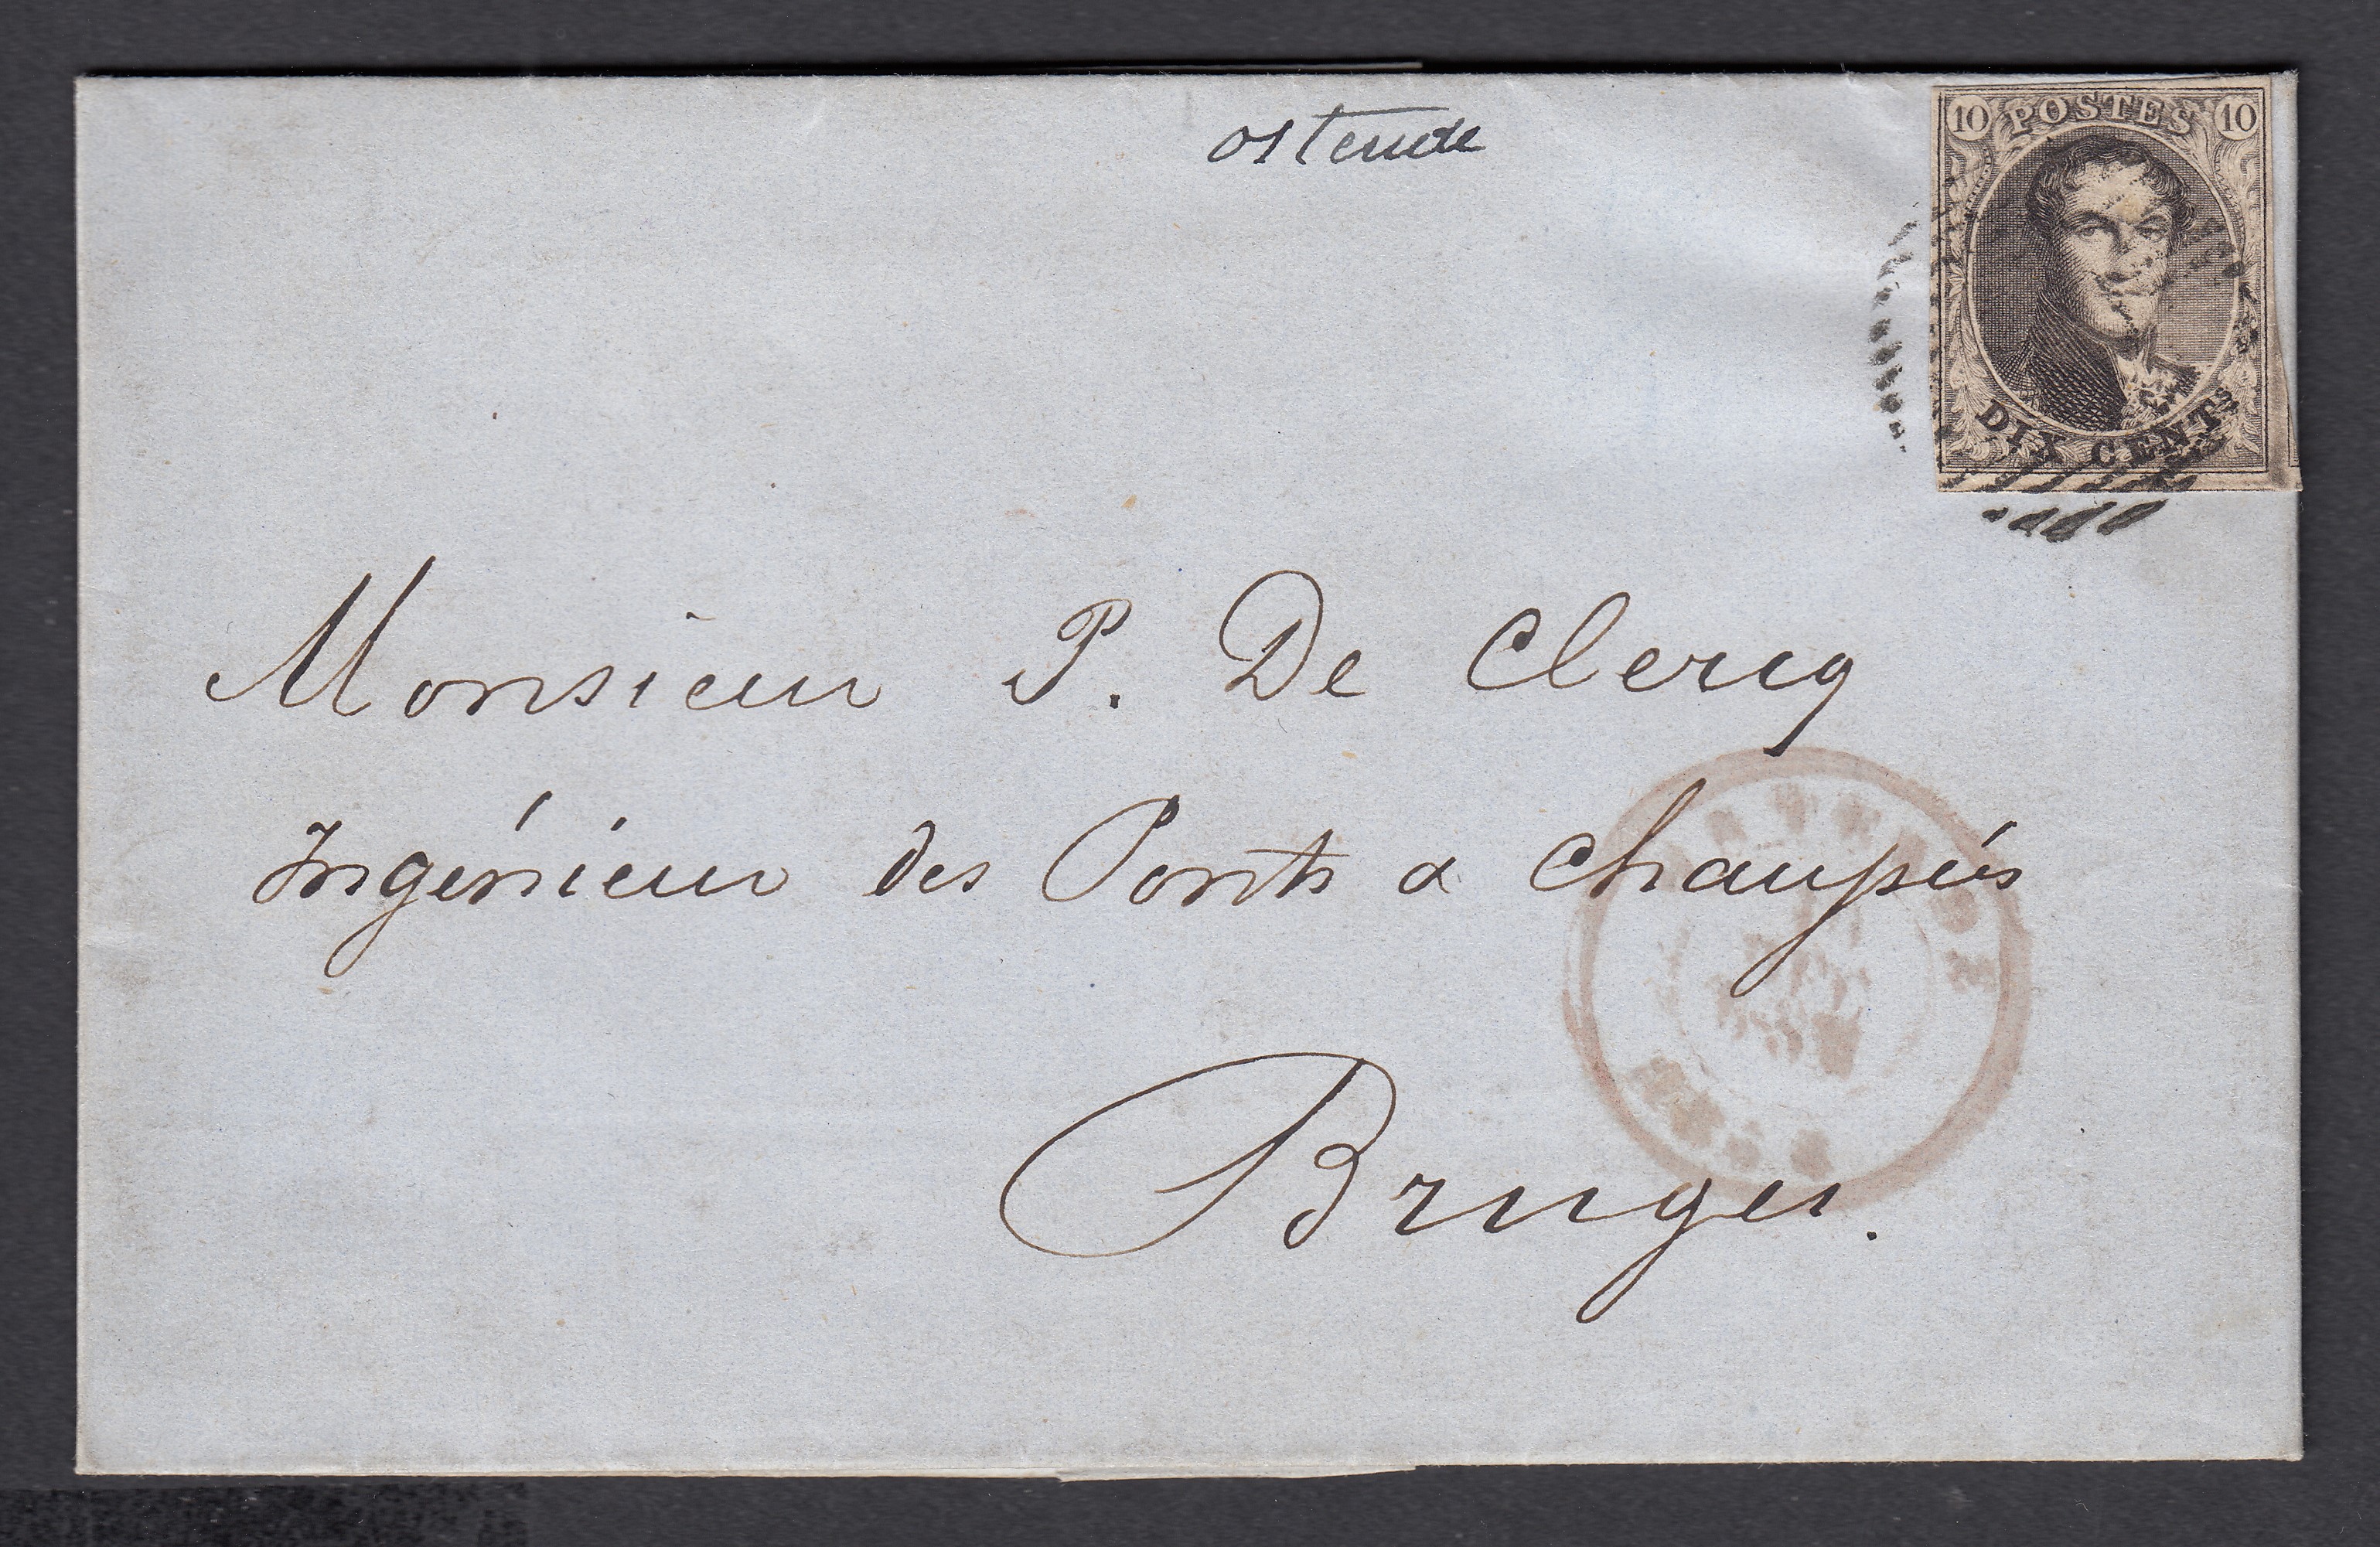 ostende
10 POSTES 10
DIX CENTS
Monsieur P. De Clercq
Ingénieur des Ponts & Chaussées
Bruges.